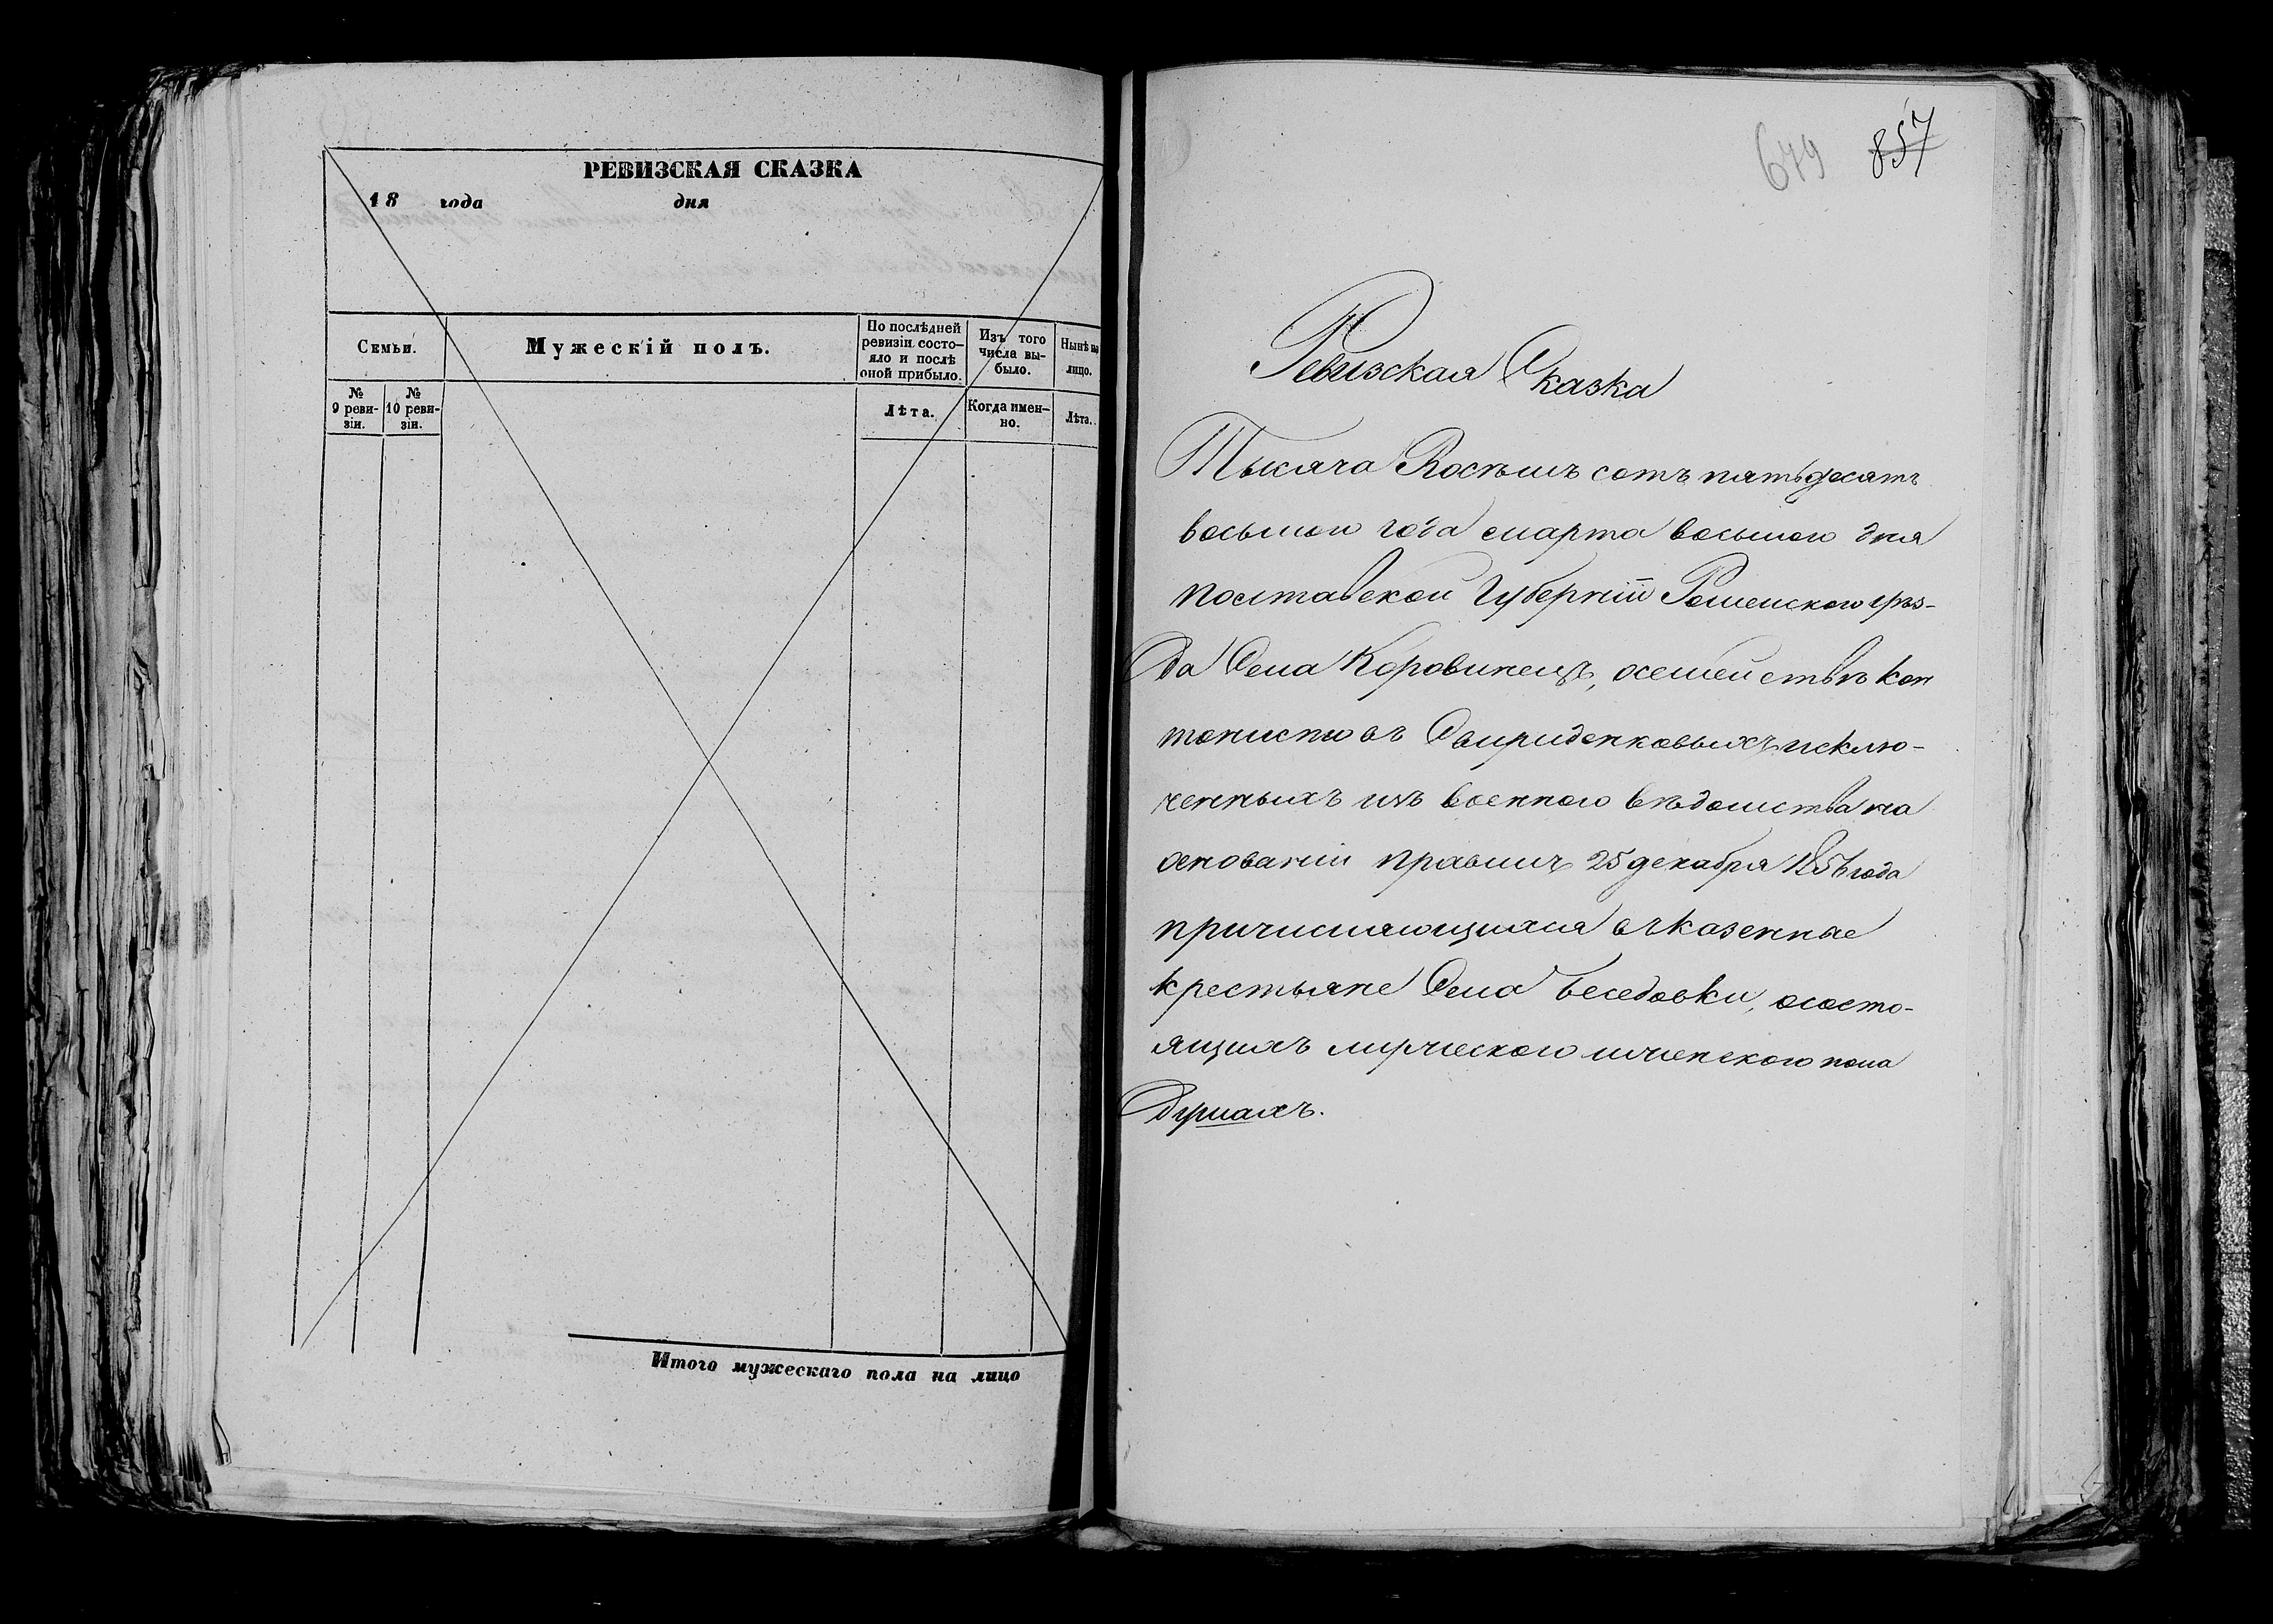 РЕВИЗСКАЯ СКАЗКА
18 года дня
Семьи.
Мужескій полъ.
По послѣдней
ревизіи состо-
яло и послѣ
оной прибыло.
Изъ того
числа вы-
было.
Нынѣ на
лицо.
№
9 реви-
зіи.
№
10 реви-
зіи.
Лѣта.
Когда имен-
но.
Лѣта.
Итого мужескаго пола на лицо
679 857
Ревизская Сказка
Тысяча Восѣмъ сотъ пятьдесятъ
восьмои года марта восьмои дня
полтавской Губерніи Роменского уѣз-
да Села Коровинецъ, осемействѣ кон
тонистовъ Свириденковыхъ исклю-
ченныхъ изъ военного вѣдомства на
основаніи правилъ 25 декабря 1856 года
причисляющихся въ казенные
крестьяне Села Беседовки, ососто-
ящихъ мужеского иженского пола
Душахъ.